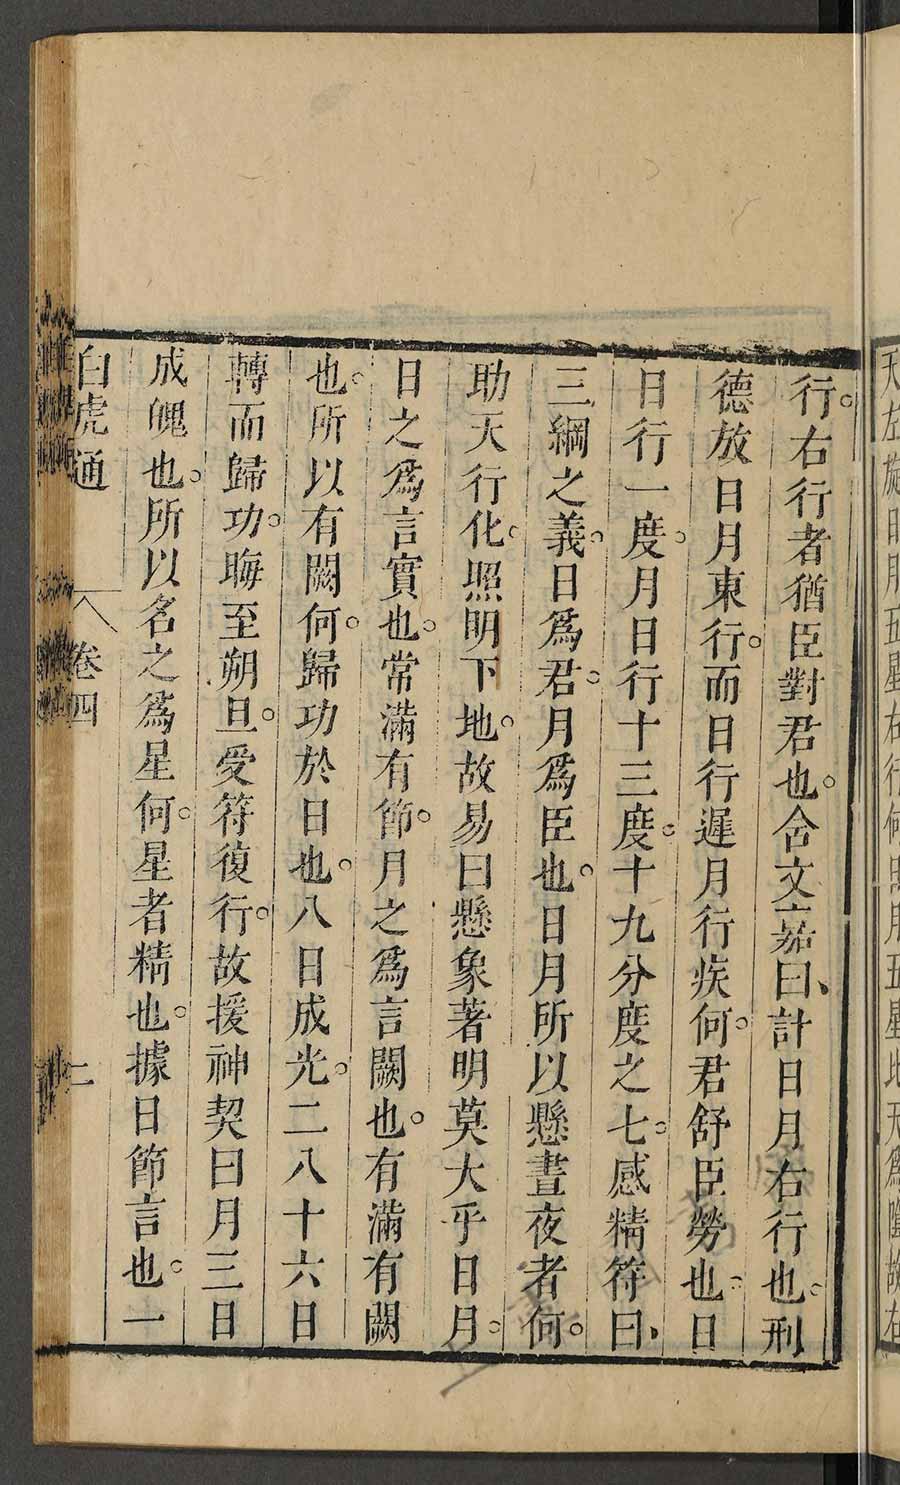 天左旋日月五星右行何日月五星比天爲陰故右
行。右行者猶臣對君也。含文嘉曰、計日月右行也。刑
德放日月東行。而日行遲月行疾何。君舒臣勞也。日
日行一度。月日行十三度。十九分度之七。感精符曰、
三綱之義。日爲君。月爲臣也。日月所以懸晝夜者何。
助天行化。照明下地。故易曰懸象著明莫大乎日月。
日之爲言實也。常滿有節。月之爲言闕也。有滿有闕
也。所以有闕何。歸功於日也。八日成光。二八十六日
轉而歸功。晦至朔旦。受符復行。故援神契曰月三日
成魄也。所以名之爲星何。星者精也。據日節言也。一
白虎通
卷四
二